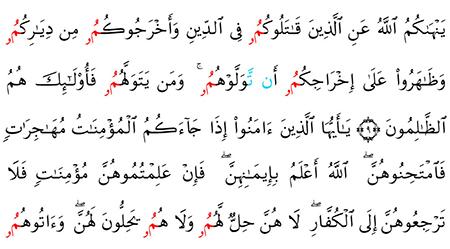 يَنْهَىٰكُمُ ٱللَّهُ عَنِ ٱلَّذِينَ قَـٰتَلُوكُمُۥ فِى ٱلدِّينِ وَأَخْرَجُوكُمُۥ مِن دِيَـٰرِكُمُۥ
وَظَـٰهَرُوا۟ عَلَىٰٓ إِخْرَاجِكُمُۥٓ أَن تَوَلَّوْهُمُۥ ۚ وَمَن يَتَوَلَّهُمُۥ فَأُو۟لَـٰٓئِكَ هُمُ
ٱلظَّـٰلِمُونَ ۝٩ يَـٰٓأَيُّهَا ٱلَّذِينَ ءَامَنُوٓا۟ إِذَا جَآءَكُمُ ٱلْمُؤْمِنَـٰتُ مُهَـٰجِرَٰتٍ
فَٱمْتَحِنُوهُنَّ ۖ ٱللَّهُ أَعْلَمُ بِإِيمَـٰنِهِنَّ ۖ فَإِنْ عَلِمْتُمُوهُنَّ مُؤْمِنَـٰتٍ فَلَا
تَرْجِعُوهُنَّ إِلَى ٱلْكُفَّارِ ۖ لَا هُنَّ حِلٌّ لَّهُمُۥ وَلَا هُمُۥ يَحِلُّونَ لَهُنَّ ۖ وَءَاتُوهُمُۥ